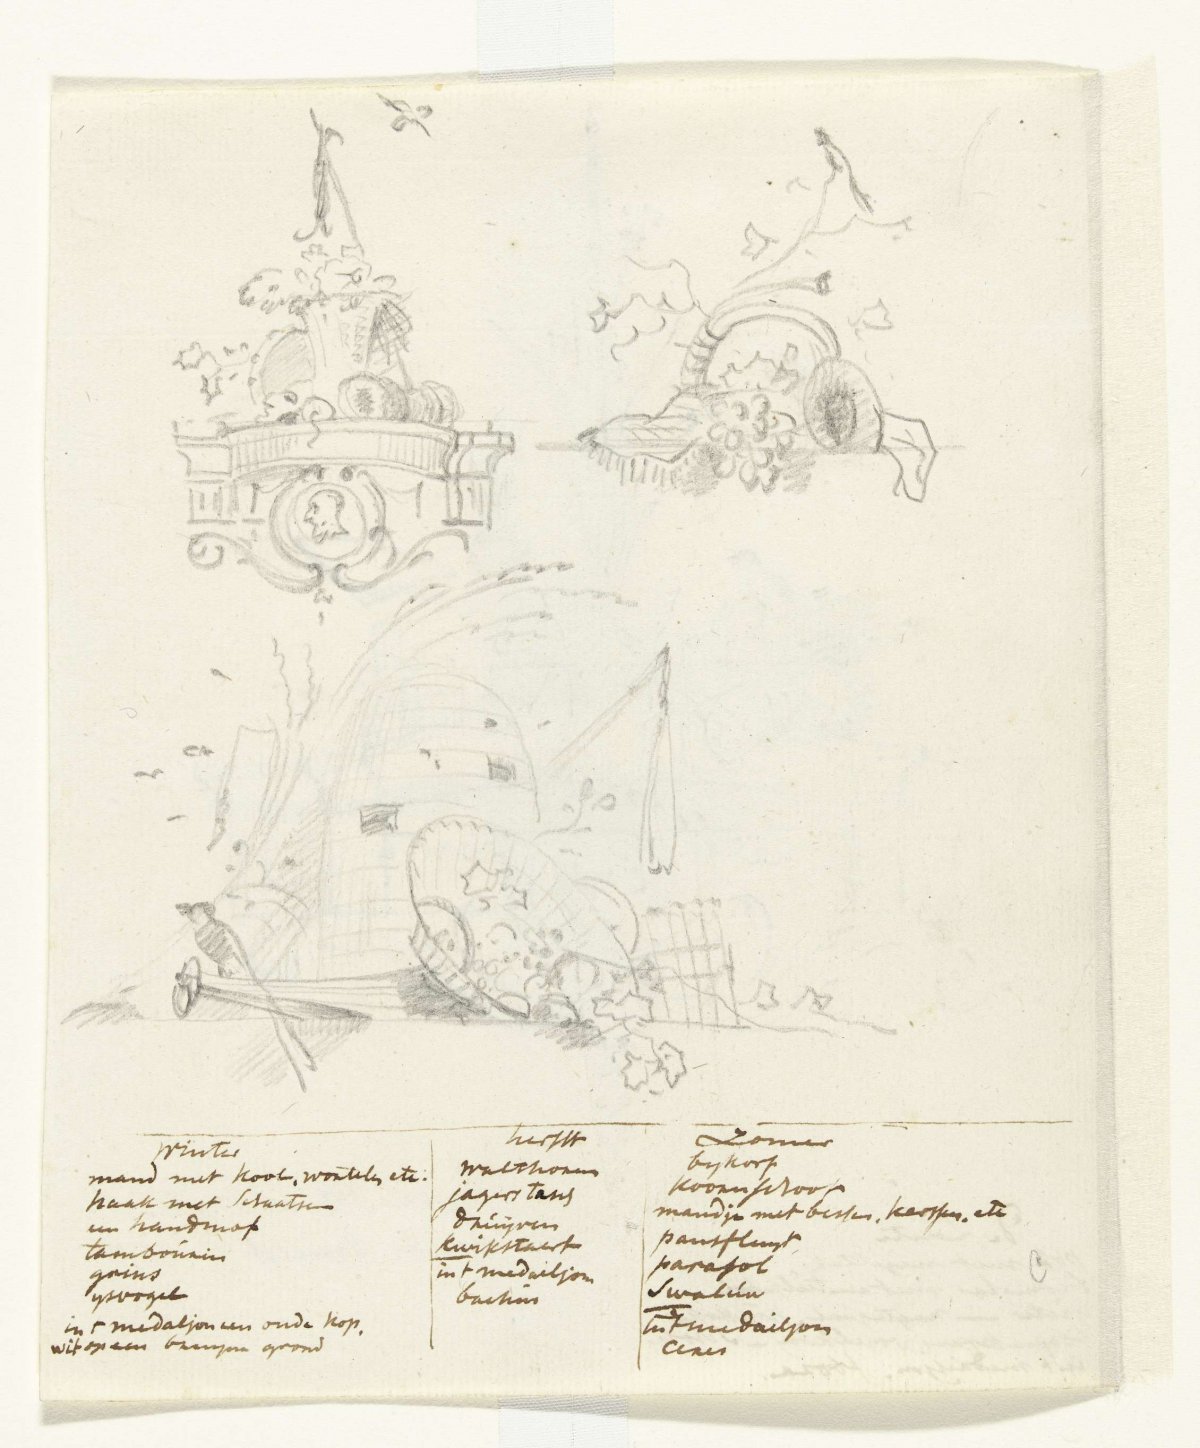 winter
mand met kool, wortelen etc.
haak met schaatsen
een handmof
tambourin
grins
ysvogel
in t medaljon een oude kop,
wit op een bruyne grond
herfst
walthoren
jagers tasch
druyven
kwikstaert
in t medailjon
bachus
Zomer
bykorf
koornschoof
mandje met bessen, karssen, etc
pansfluyt
parasol
Swaluw
in t medailjon
Ceres